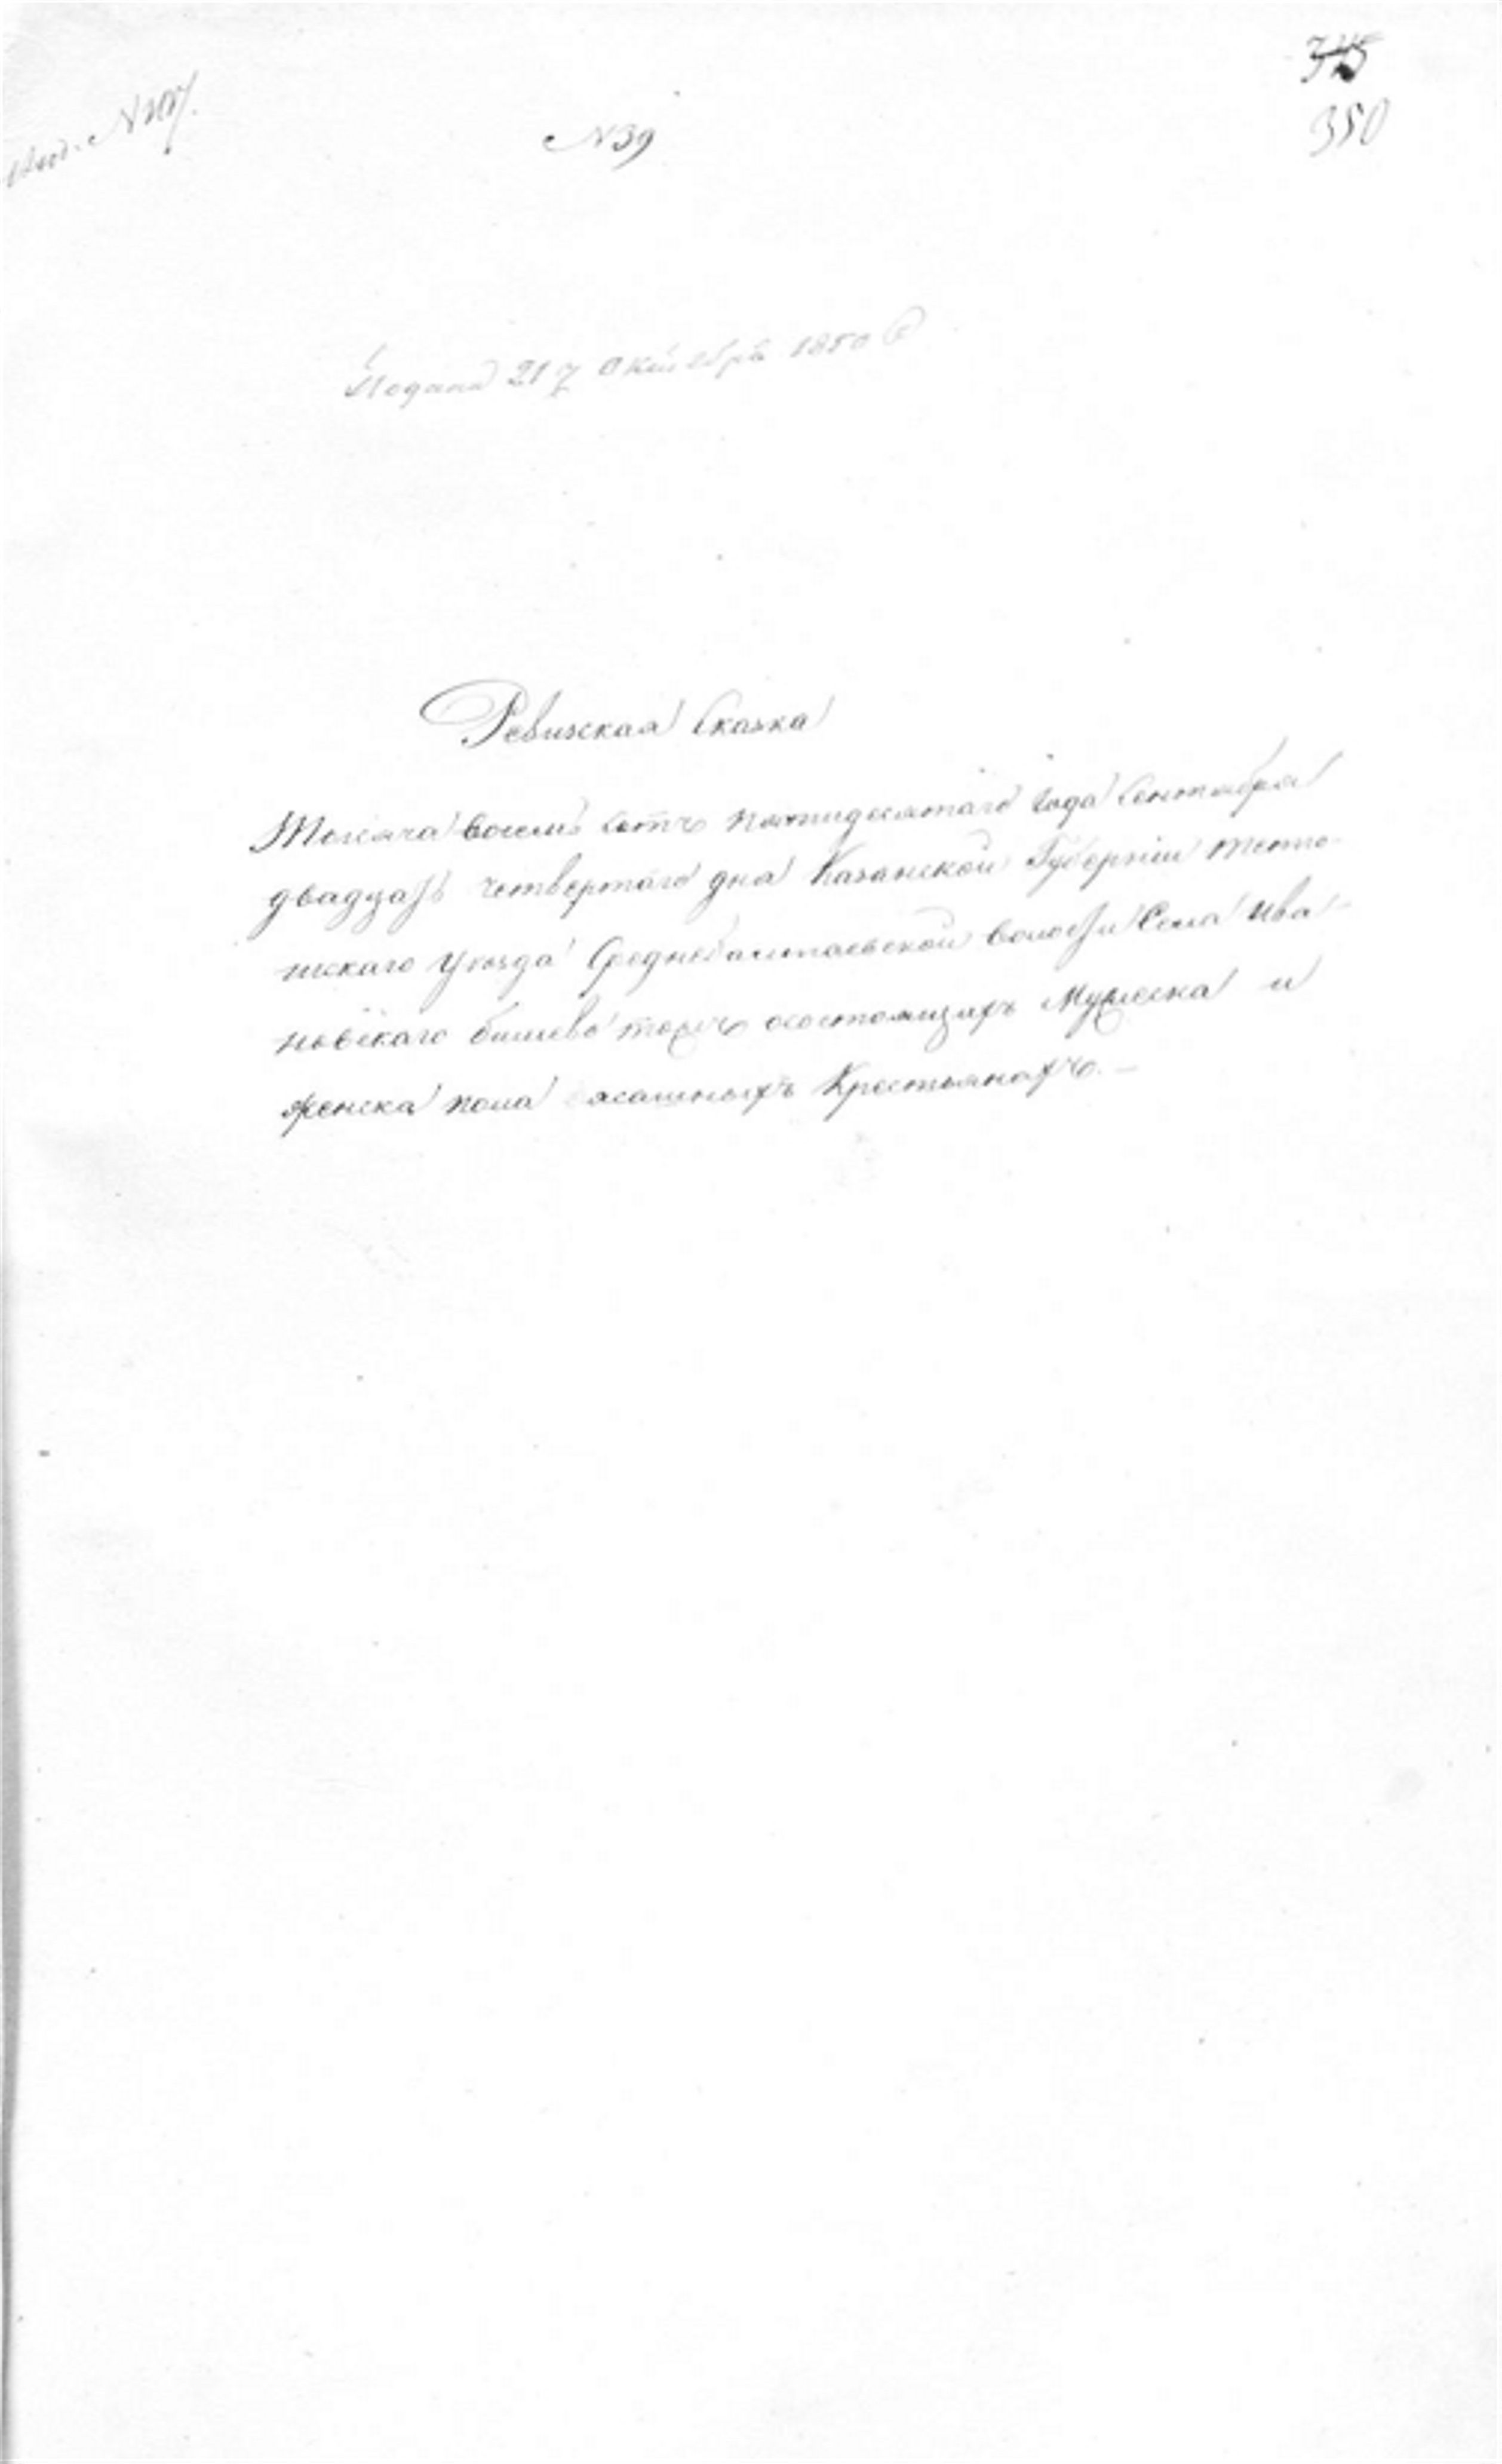 N 39
350
Подана 21 Октября 1850
Ревизская Сказка
Тысяча восемь сотъ пятидесятаго Года Сентября
двадцать четвертаго дня Казанской Губернiи тетю-
шскаго уезда Среднебалтаевской волости Села Ива-
новскаго бишево тожъ осостоящихъ Мужеска и
женска пола ясашныхъ Крестьянахъ. —